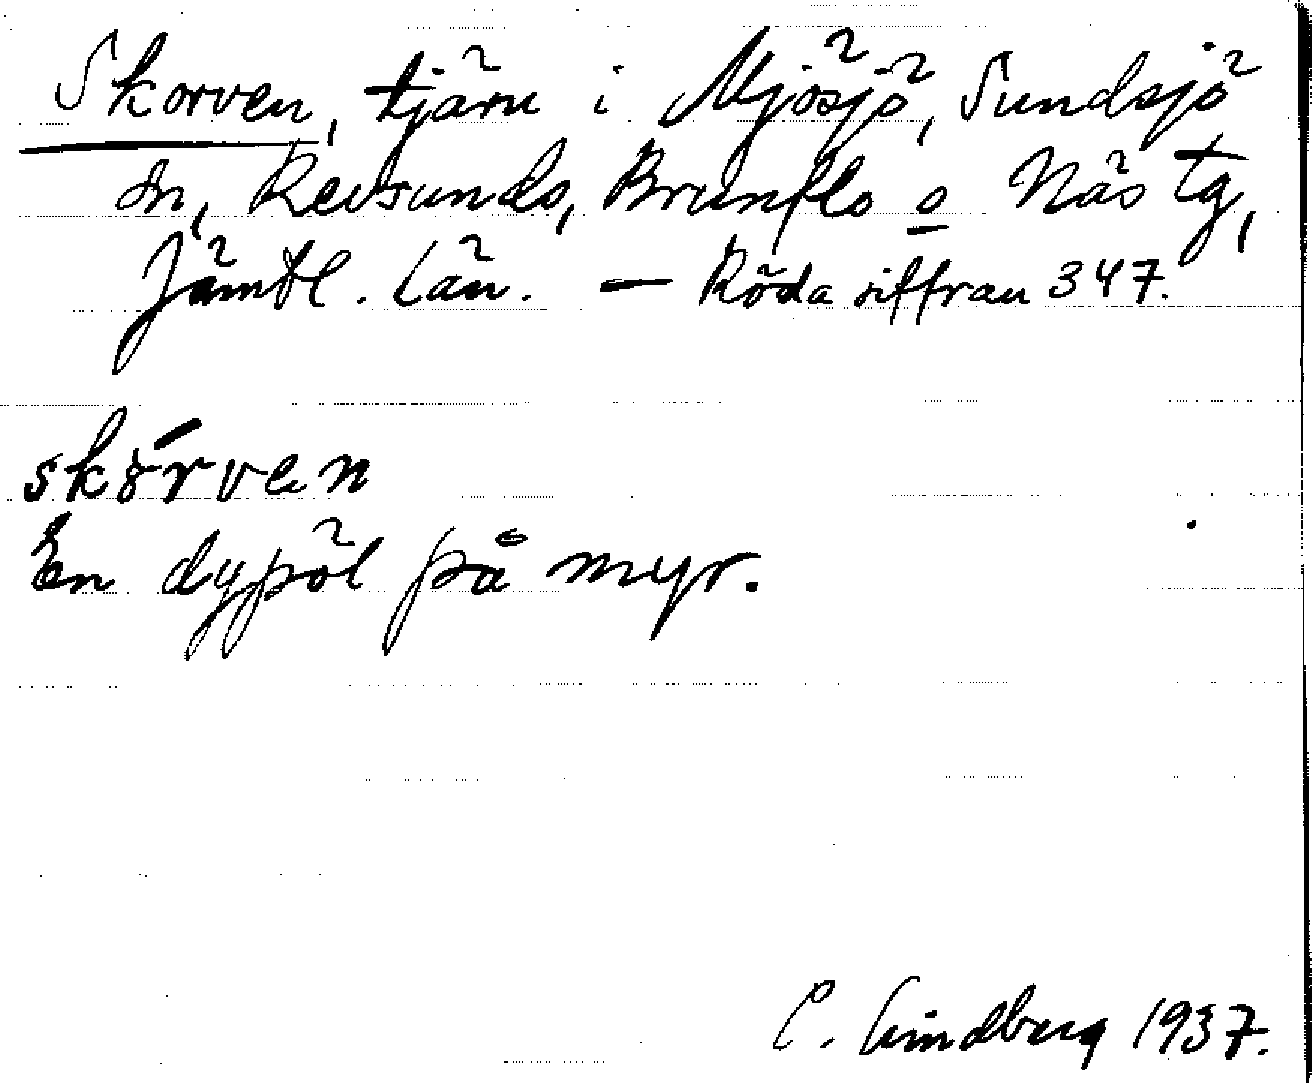 Skorven, tjärn i Mjösjö, Sundsjö
sn, Revsunds, Brunflo o Näs tg,
Jämtl. län. — Röda siffran 347.
skǒ́rven
En dypöl på myr.
C. Lindberg 1937.